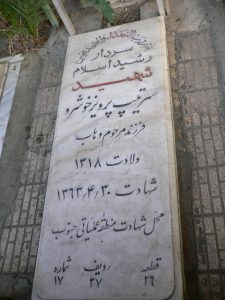 سردار
رشید اسلام
شهید
سرتیپ پرویز خوشرو
فرزند مرحوم وهاب
ولادت ۱۳۱۸
شهادت ۱۳۶۳٫۴٫۳۰
محل شهادت منطقه عملیاتی جنوب
قطعه ردیف شماره
۲۶ ۲۷ ۱۷